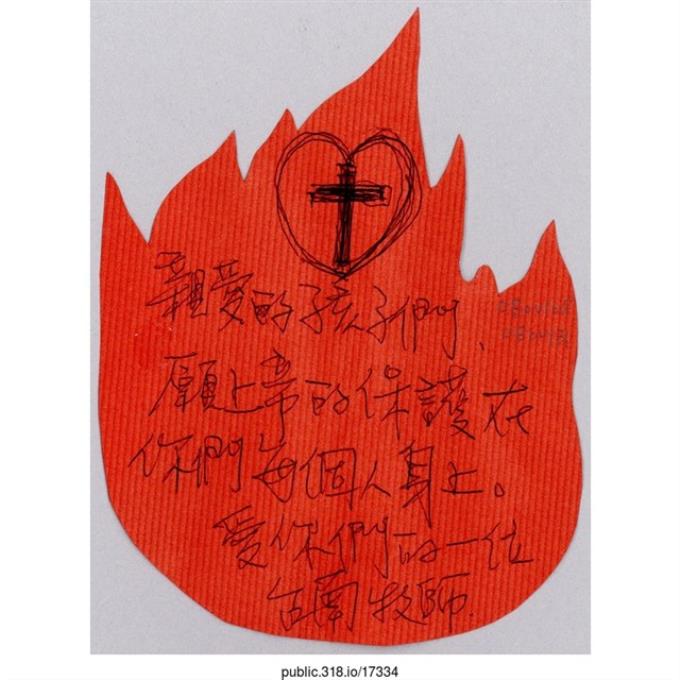 親愛的孩子們、
願上帝的保護在
你們每個人身上。
愛你們的一位
台南牧師.
public.318.io/17334